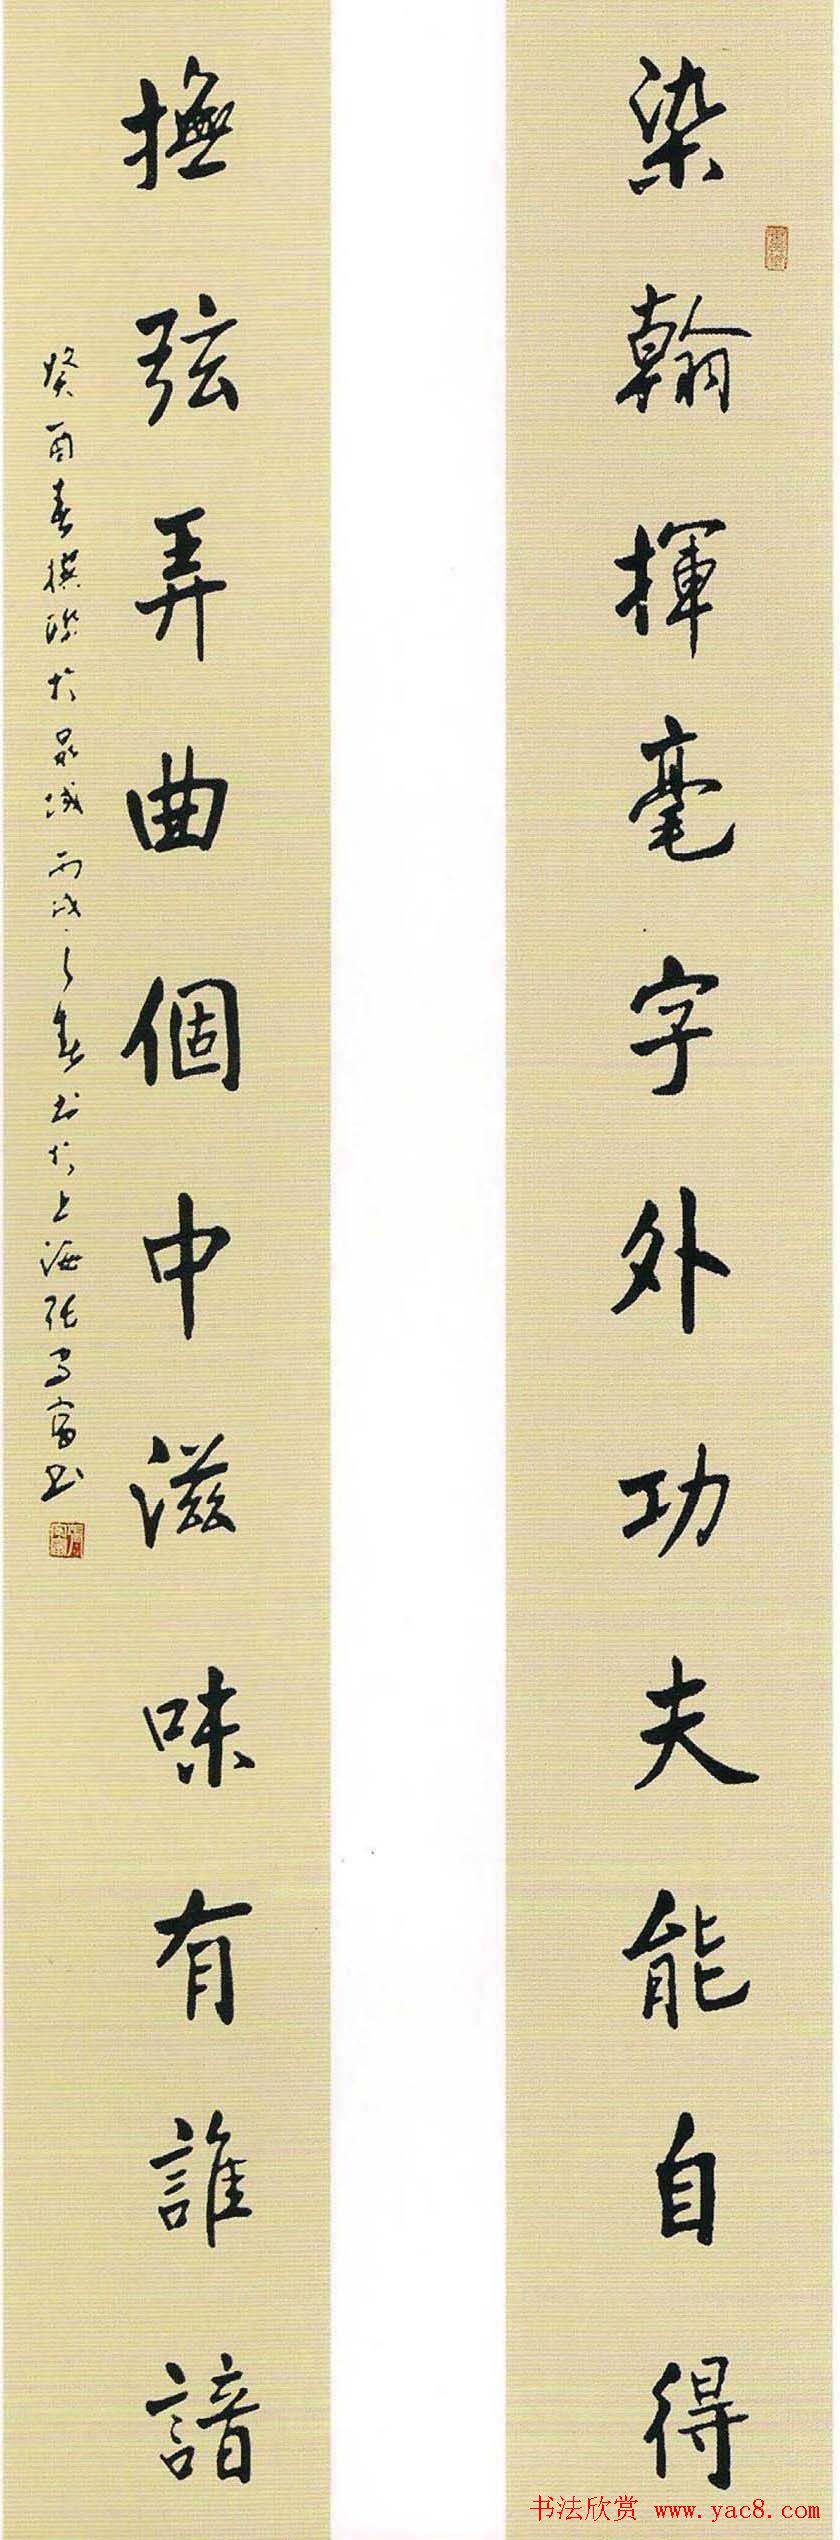 染翰揮毫字外功夫能自得
撫弦弄曲個中滋味有誰諳
癸酉春撰聯於泉城丙戌之春書於上海張寿富書
书法欣赏 www.yac8.com